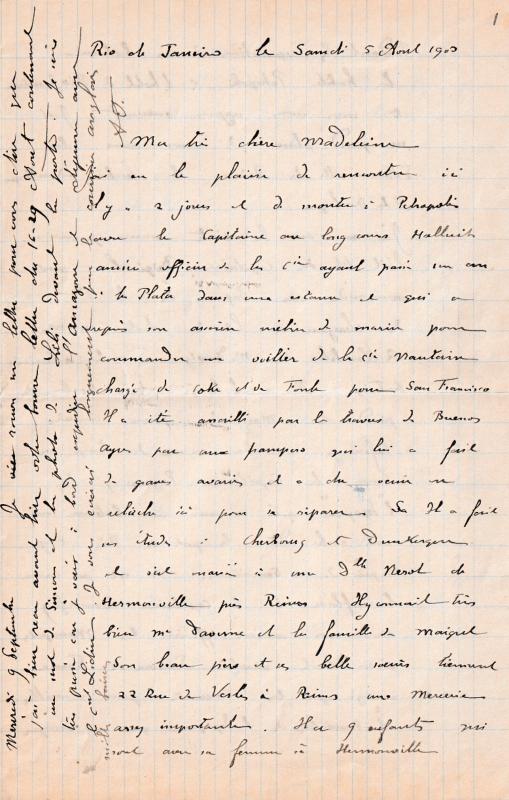 1
Rio de Janeiro le Samedi 5 Aout 190
Ma très chère Madeleine
J'ai eu le plaisir de rencontrer ici
il y a 2 jours et de monter à Petropolis
avec le Capitaine au long cours
ancien officier de la Cie ayant passé un an
à la Plata dans une estancia et qui a
repris son ancien métier de marin pour
commander un voilier de la Cie Nantaise
chargé de coke et de Fonte pour San Francisco
Il a été par le travers de Buenos
ayres par un pampero qui lui a fait
de graves avaries et a du venir en
relâche ici pour se réparer. Il a fait
ses études à Cherbourg et Dunkerque
et s'est marié à une Dlle de
Hermonville près Reims. Il connait très
bien Mr et la famille de Maigret
Son beau père et ses belle soeurs tiennent
22 Rue de Vesle à Reims une Mercerie
assez importante. Il a 9 enfants qui
sont avec sa femme à Hermonville
Mercredi 9 Septembre Je viens vous dire que
j'ai bien reçu avant hier votre bonne lettre du 16-29 Aout contenant
un mot de Simone et la photo de Lili devant la porte. Je suis
très pressé car j'vais à bord l'Amazone déjeuner avec